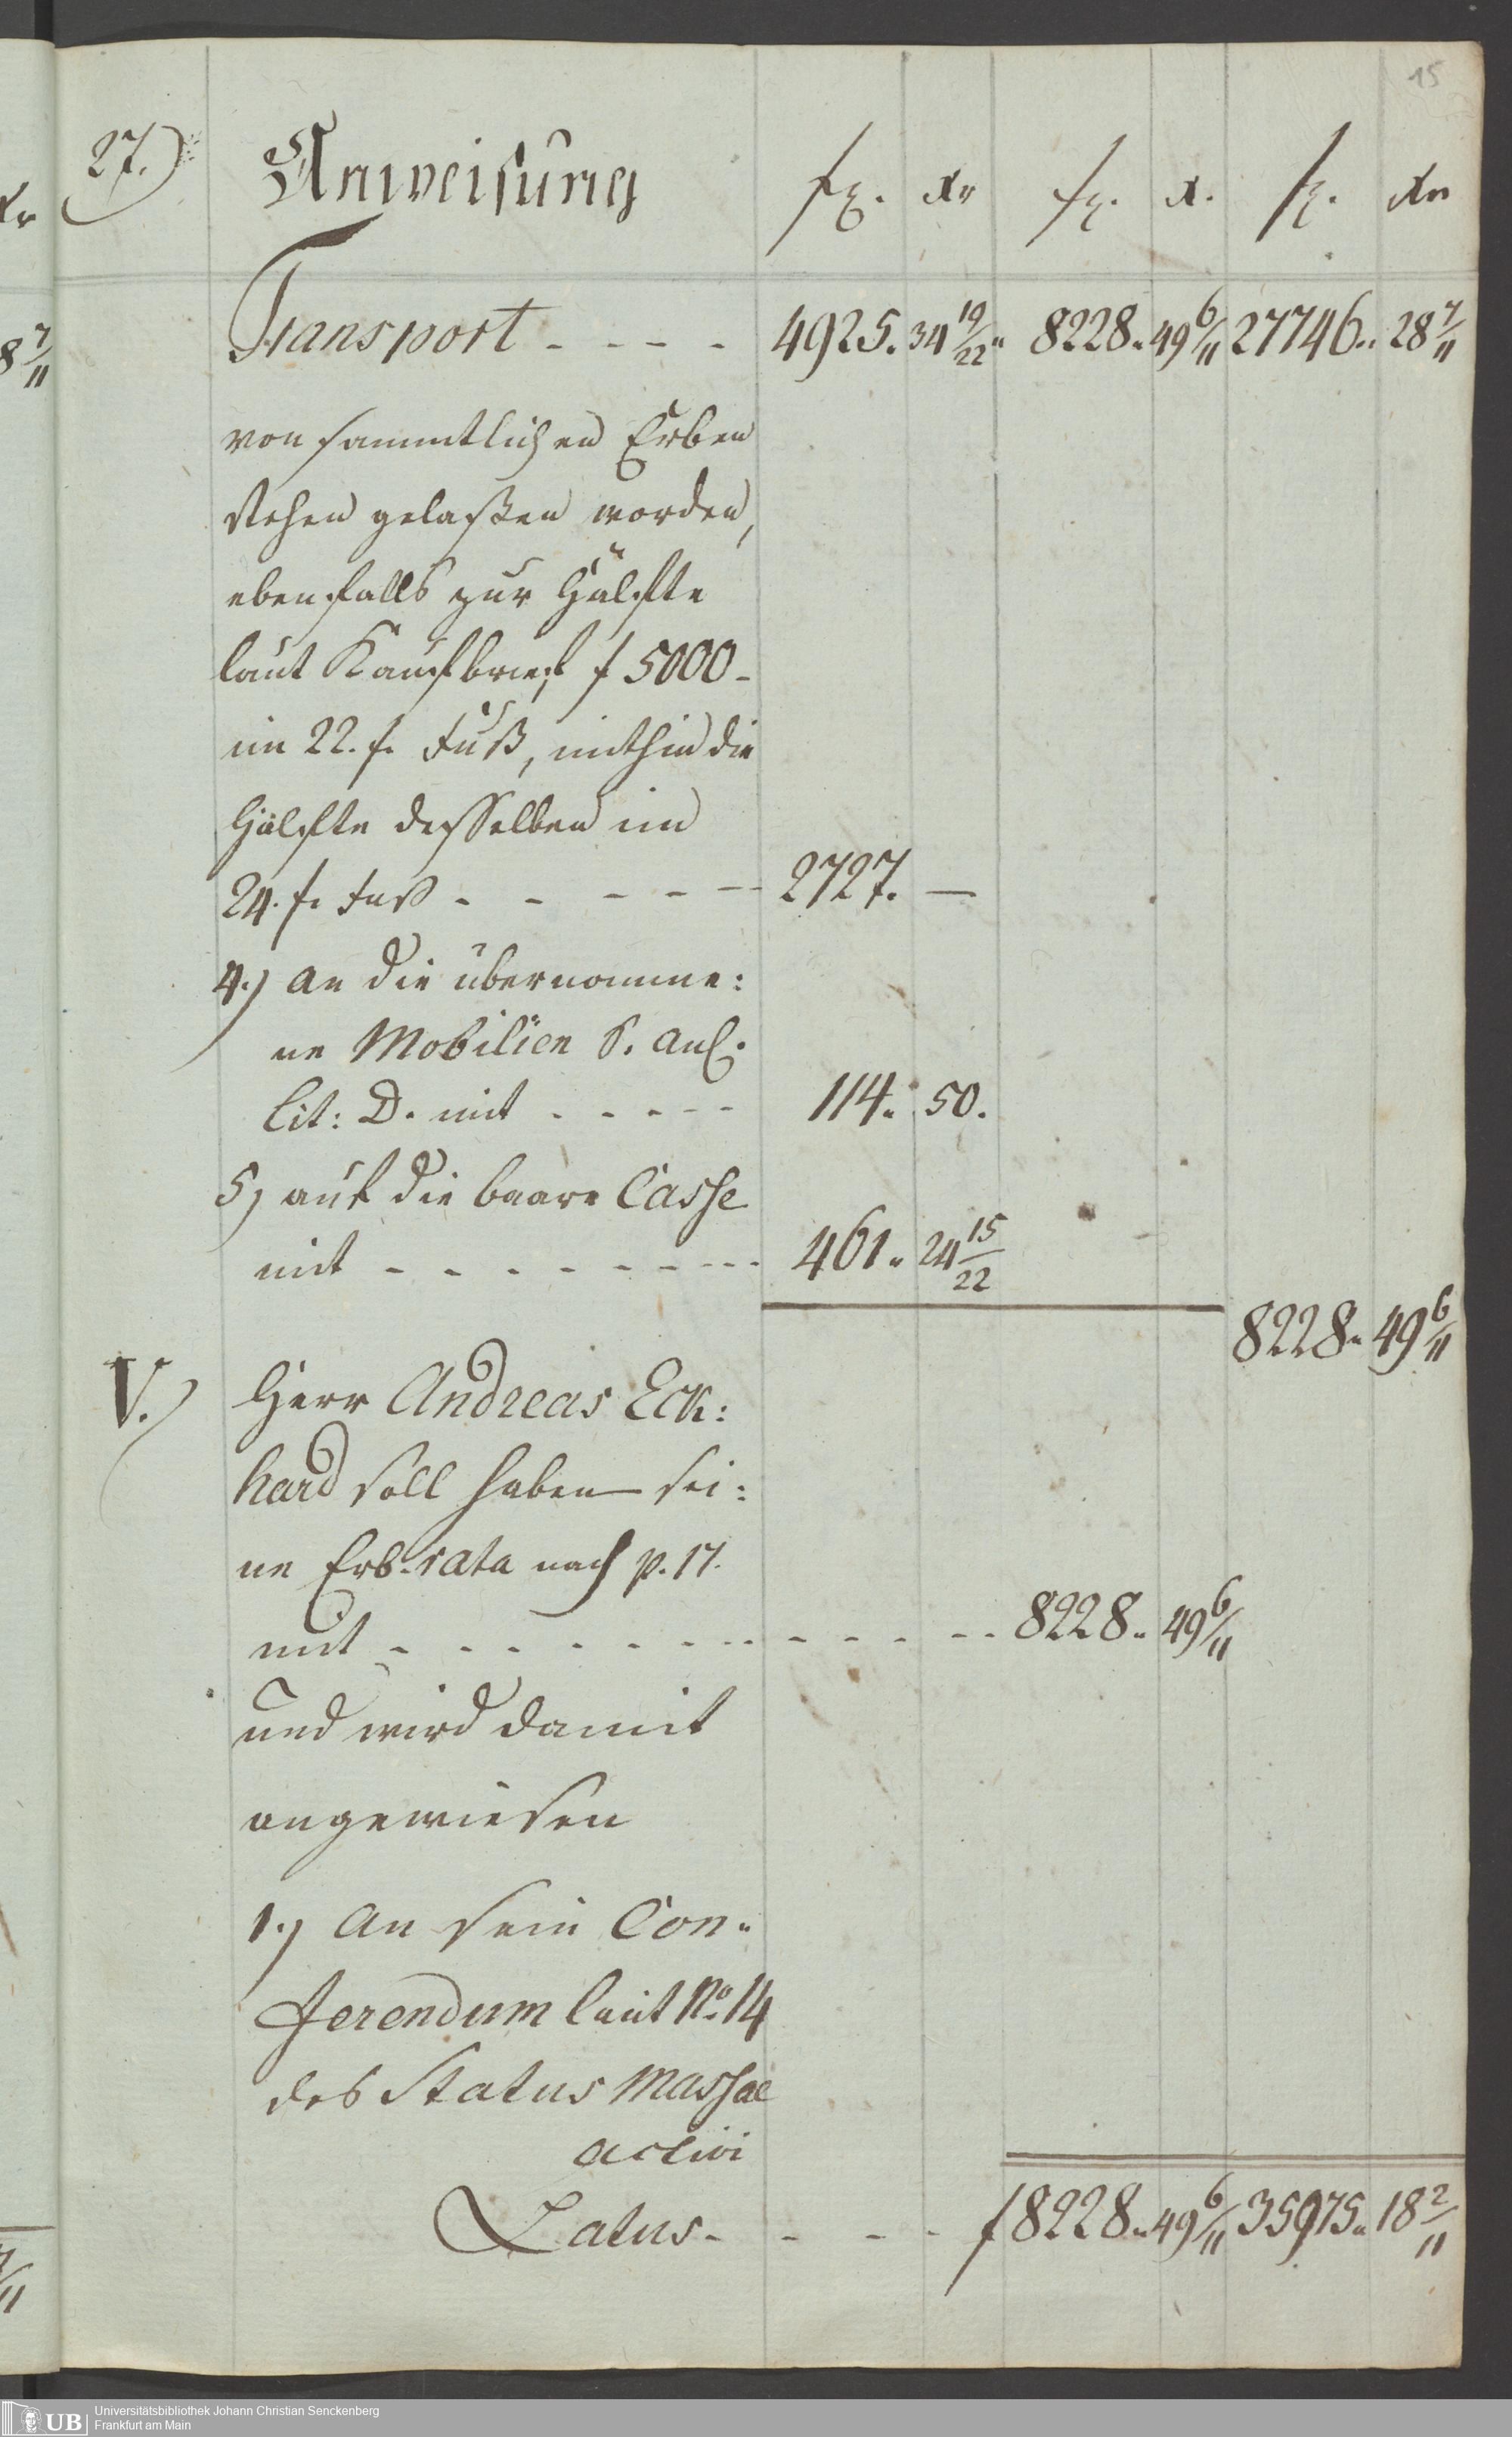 15
27.) Anweisung fl. Xr fl. X. fl. Xr
Transport - - - - 4925. 34 19/22 " 8228 " 49 6/11 27746 " 28 7/11
von sammtlichen Erben
stehen gelaßen worden,
ebenfalls zur Hälfte
laut Kaufbrief f 5000 -
im 22. f. Fuß, mithin die
Hälfte desselben im
24. f. Fuß - - - - - 2727. —
4.) an die übernomme:
ne Mobilien S. Anl.
Lit: D. mit - - - - - 114. 50.
5) auf die baare Casse
mit - - - - - - - - 461 " 24 15/22
8228 " 49 6/11
V.) Herr Andreas Eck:
hard soll haben sei:
ne Erb-rata nach p. 17.
mit - - - - - - - - - - - 8228 " 49 6/11
und wird damit
angewiesen
1.) An sein Con-
ferendum laut No. 14
des Status Massae
activi
Latus - - - - f 8228 " 49 6/11 35975 " 18 2/11
UB Universitätsbibliothek Johann Christian Senckenberg
Frankfurt am Main